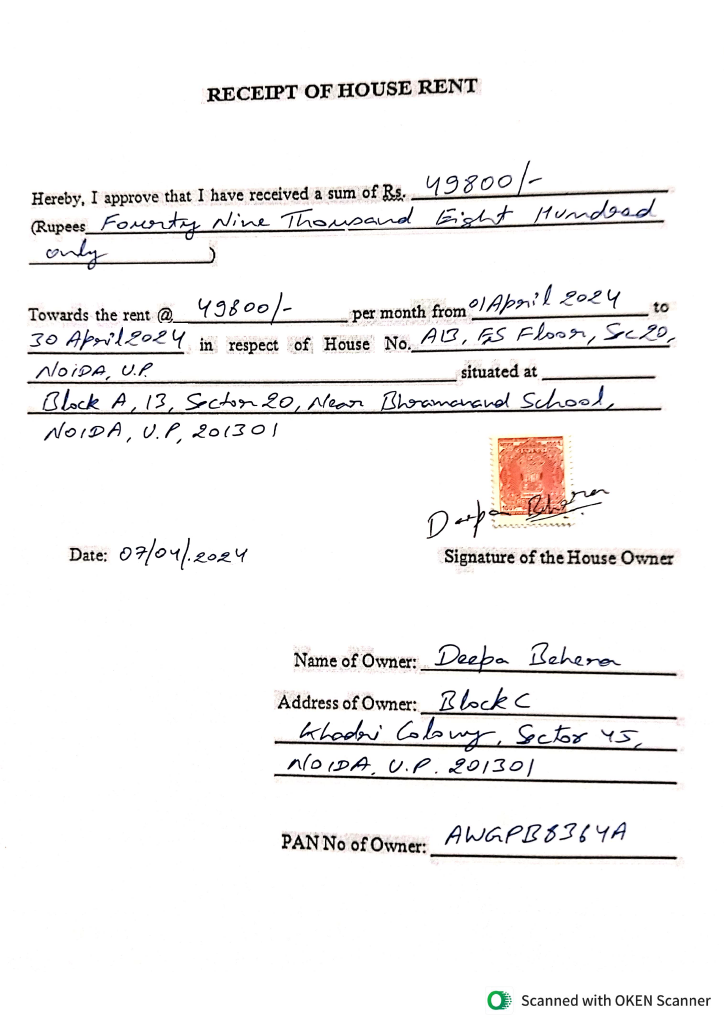 RECEIPT OF HOUSE RENT
Hereby, I approve that I have received a sum of Rs. 49800/-
(Rupees Fourty Nine Thousand Eight Hundred
only )
Towards the rent @ 49800/- per month from 01 April 2024 to
30 April 2024 in respect of House No. A13, Floor, Sec 20,
NOIDA, U.P. situated at
Block A, 13, Sector 20, Near Bhramanand School,
NOIDA, U.P, 201301
Deepa Behera
Date: 07/04/.2024 Signature of the House Owner
Name of Owner: Deepa Behera
Address of Owner: Block C
Khadri Colony, Sector 45,
NOIDA, U.P. 201301
PAN No of Owner: AWGPB8364A
Scanned with OKEN Scanner